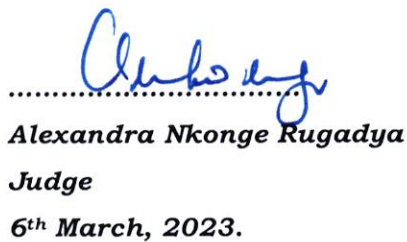 Alexandra Nkonge Rugadya
Judge
6th March, 2023.